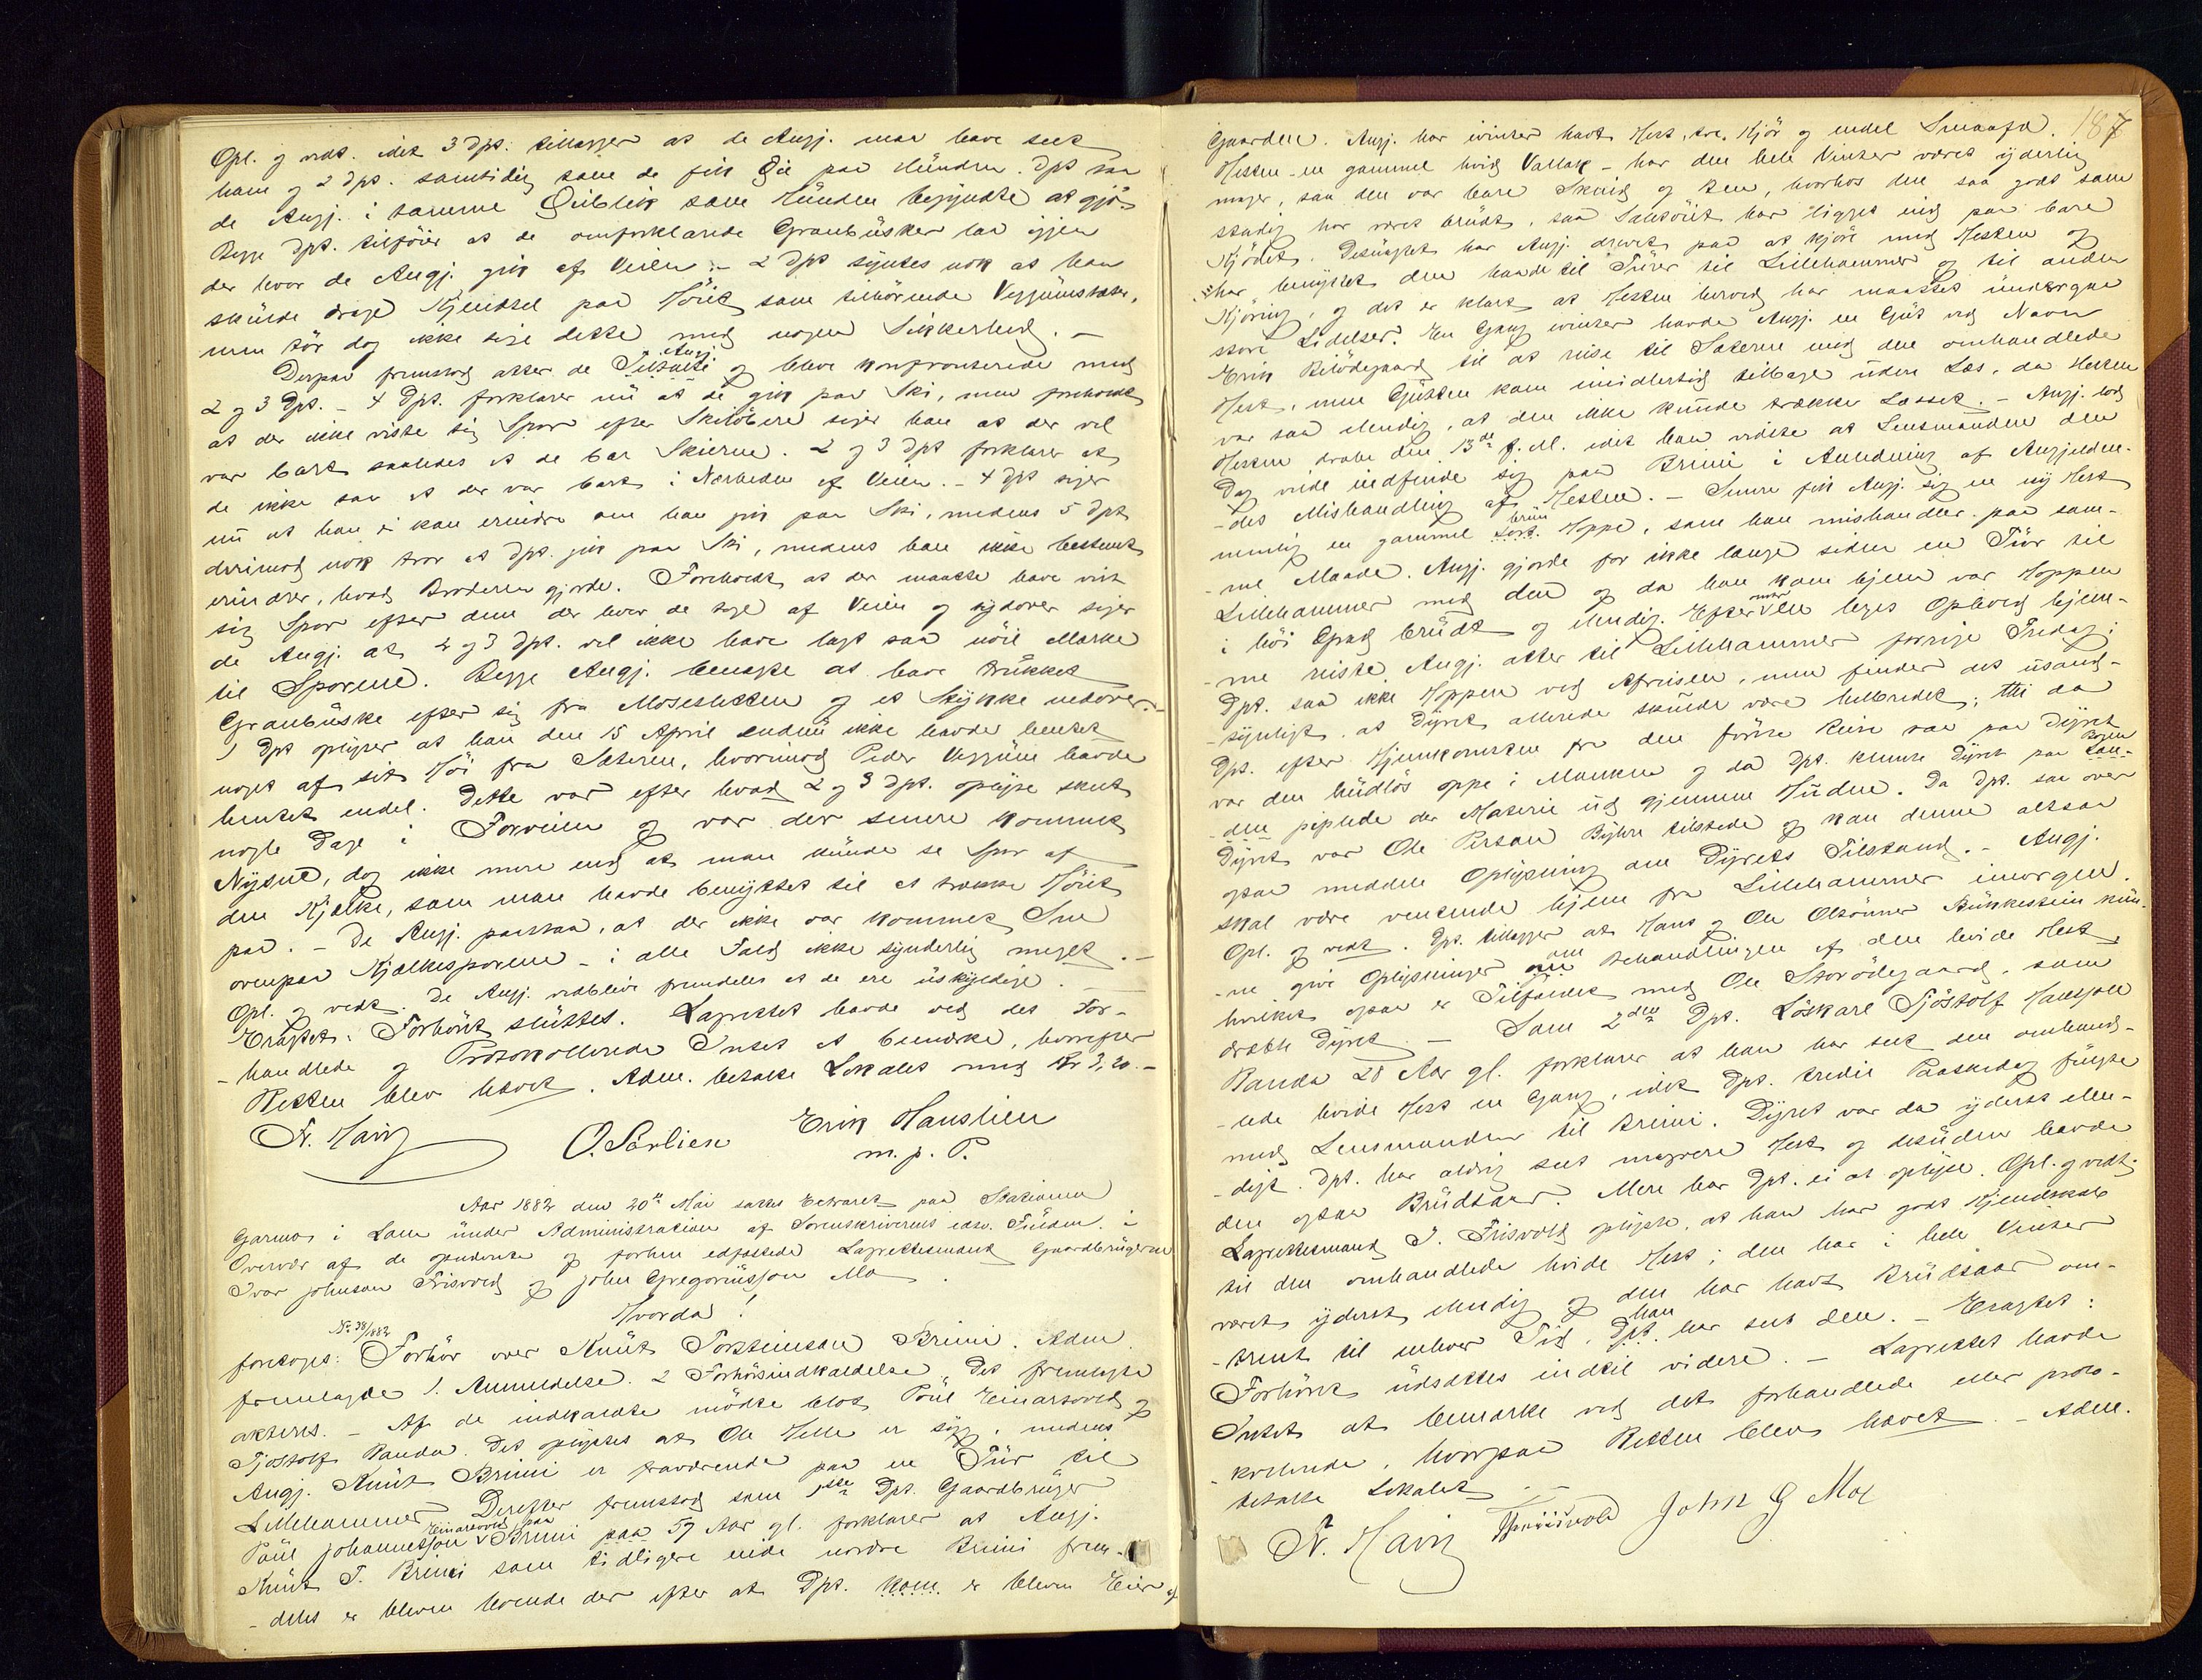 Opl. og vedt. idet 3 Dpt. tillægger at de Angj. maa have seet
ham og 2 Dpt. samtidig som de fik Øie paa Hunden. Dpt saa
de Angj. i samme Øieblik som Hunden begyndte at gjø.
Begge Dpt. tilføier at de omforklarede Granbusker laa igjen
der hvor de Angj. gik af Veien. – 2 Dpt syntes nok at han
skulde drage Kjendsel paa Høiet som tilhørende Veggumsæter,
men tør dog ikke sige dette med nogen Sikkerhed. –
Derpaa fremstod atter de Tiltalte Angj. og bleve konfronterede med
2 og 3 Dpt. – 4 Dpt. forklarer nu at de gik paa Ski, men foreholdt
at der ikke viste sig Spor efter Skiløbere siger han at der vel
var bart saaledes at de bar Skierne. 2 og 3 Dpt forklarer at
de ikke saa at der var bart i Nærheden af Veien. – 4 Dpt siger
nu at han ei kan erindre om han gik paa Ski, medens 5 Dpt
derimod nok tror at Dpt. gik paa Ski, medens han ikke bestemt
erindrer, hvad Broderen gjorde. Foreholdt at der maatte have vist
sig Spor efter dem der hvor de tog af Veien og sydover siger
de Angj. at 2 og 3 Dpt. vel ikke have lagt saa nøie Mærke
til Sporene. Begge Angj. benegte at have trukket
Granbuske efter sig fra Moseslotten og et Stykke nedover. –
1 Dpt oplyser at han den 15 April endnu ikke havde hentet
noget af sit Høi fra Sæteren, hvorimod Peder Veggum havde
hentet endel. Dette var efter hvad 2 og 3 Dpt. oplyse skeet
nogle Dage i Forveien og var der senere kommet
Nysne, dog ikke mere end at man kunde se Spor af
den Kjælke, som man havde benyttet til at trække Høiet
paa. – De Angj. paastaa, at der ikke var kommet Sne
ovenpaa Kjælkesporene – i alle Fald ikke synderlig meget. –
Opl. og vedt. De Angj. vedblive fremdeles at de ere uskyldige. –
Eragtet: Forhøret sluttes. Lagrettet havde ved det For-
-handlede og Protokollerede Intet at bemærke, hvorefter
Retten blev hævet. Adm. betalte Lokalet med Kr 3,20. –
Fr. Hairz O. Sørlien Erik Hanslien
m. p. P.
Aar 1882 den 20de Mai sattes Extraret paa Stationen
Garmo i Lom under Administration af Sorenskriverens edsv. Fuldm. i
Overvær af de opnævnte og forhen edfæstede Lagrettesmænd Gaardbrugerne
Ivar Johnson Frisvold og John Gregoriussøn Mo
Hvorda!
No. 38/1882
foretoges: Forhør over Knut Torsteinson Brimi. Adm.
fremlagde 1. Anmeldelse. 2 Forhørsindkaldelse. Det fremlagte
akteres. – Af de indkaldte mødte blot Poul Einarsvold og
Tjøstolf Randa. Det oplystes at Ole Helle er syg, medens
Angj. Knut Brimi er fraværende paa en Tur til
Lillehammer. Derefter fremstod som 1ste Dpt. Gaardbruger
Poul Johannessøn Einarsvold paa Brimi paa 59 Aar gl. forklarer at Angj.
Knut T. Brimi som tidligere eiede nordre Brimi frem-
-deles er bleven boende der efter at Dpt. kom er bleven Eier af
187
Gaarden. Angj. har ivinter havt Hest, tre Kjør og endel Smaafæ.
Hesten – en gammel hvid Vallak – har den hele Vinter været yderlig
mager, saa den var bare Skind og Ben, hvorhos den saa godt som
stadig har været brudt, saa Sæletøiet har ligget ind paa bare
Kjødet. Desuagtet har Angj. drevet paa at kjøre med Hesten og
har benyttet den baade til Turer til Lillehammer og til anden
Kjøring, og det er klart at Hesten herved har maattet undergaa
store Lidelser. En Gang ivinter havde Angj. en Gut ved Navn
Erik Bilødegaard til at reise til Sæteren med den omhandlede
Hest, men Gutten kom imidlertid tilbage uden Læs, da Hesten
var saa elendig, at den ikke kunde trække Lasset. – Angj. lod
Hesten dræbe den 13de f. M. idet han vidste at Lensmanden den
Dag vilde indfinde sig paa Brimi i Anledning af Angjelden-
-des Mishandling af Hesten. – Senere fik Angj. sig en ny Hest
nemlig en gammel sort brun Hoppe, som han mishandler paa sam-
-me Maade. Angj. gjorde for ikke længe siden en Tur til
Lillehammer med den og da han kom hjem var Hoppen
i høi Grad brudt og elendig. Efter noen Uges Ophold hjem-
-me reiste Angj. atter til Lillehammer forrige Fredag;
Dpt. saa ikke Hoppen ved Afreisen, men finder det usand-
-synligt, at Dyret allerede skulde være helbredet; thi da
Dpt. efter Hjemkomsten fra den første Reise saa paa Dyret
var den hudløs oppe i Manken og da Dpt. klemte Dyret paa Bogen Læn-
-den piplede der Materie ud gjennem Huden. Da Dpt. saa over
Dyret var Ole Persøn Byhre tilstede og kan denne altsaa
ogsaa meddele Oplysning om Dyrets Tilstand. – Angj.
skal være ventende hjem fra Lillehammer imorgen.
Opl. og vedt. Dpt. tillægger at Hans og Ole Olsønner Bukkestein kun-
-ne give Oplysninger om Behandlingen af den hvide Hest,
hvilket ogsaa er Tilfældet med Ole Storødegaard, som
dræbte Dyret. – Som 2den Dpt. Løskarl Tjøstolf Hansson
Randa 28 Aar gl. forklarer at han har seet den omhand-
-lede hvide Hest en Gang, idet Dpt. tredie Paaskedag fulgte
med Lensmanden til Brimi. Dyret var da yderst elen-
-digt. Dpt. har aldrig seet magrere Hest og desuden havde
den ogsaa Brudsaar. Mere har Dpt. ei at oplyse. Opl. og vedt.
Lagrettesmand I. Frisvold oplyste, at han har godt Kjendskab
til den omhandlede hvide Hest; den har i hele Vinter
været yderst elendig og den har havt Brudsaar om-
-trent til enhver Tid, Dpt. han har seet den. – Eragtet:
Forhøret udsættes indtil videre. – Lagrettet havde
Intet at bemærke ved det forhandlede eller proto-
-kollerede, hvorpaa Retten blev hævet. – Adm.
betalte Lokalet. –
Fr. Hairz Frisvold John G Mo